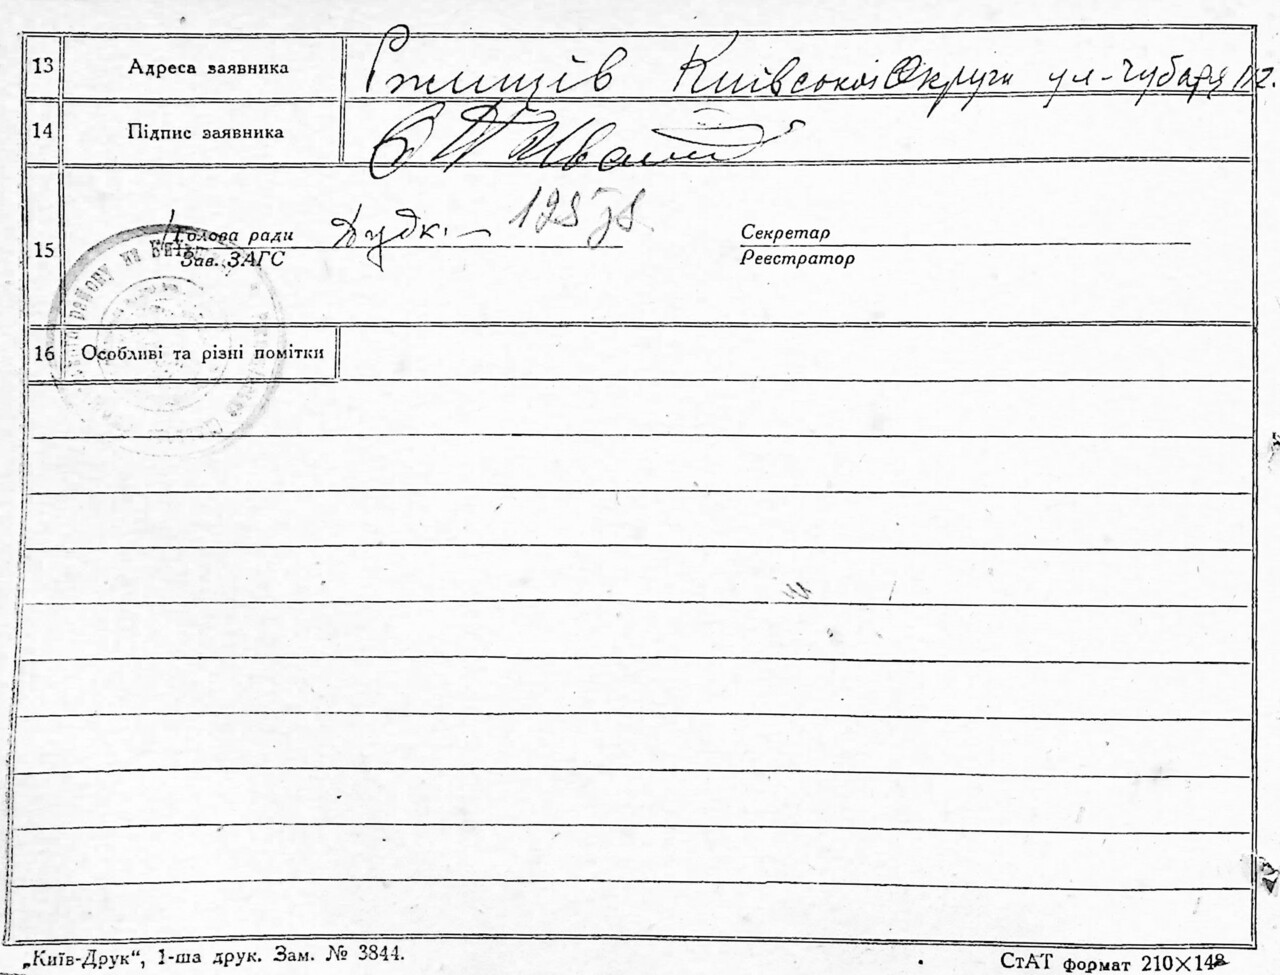 13 Адреса заявника Ржищів Київської Округи ул. Чубаря
14 Підпис заявника
15 Голова ради Секретар
Зав. ЗАГС Реєстратор
16 Особливі та різні помітки
„Київ-Друк“, 1-ша друк. Зам. № 3844. СтАТ формат 210×148